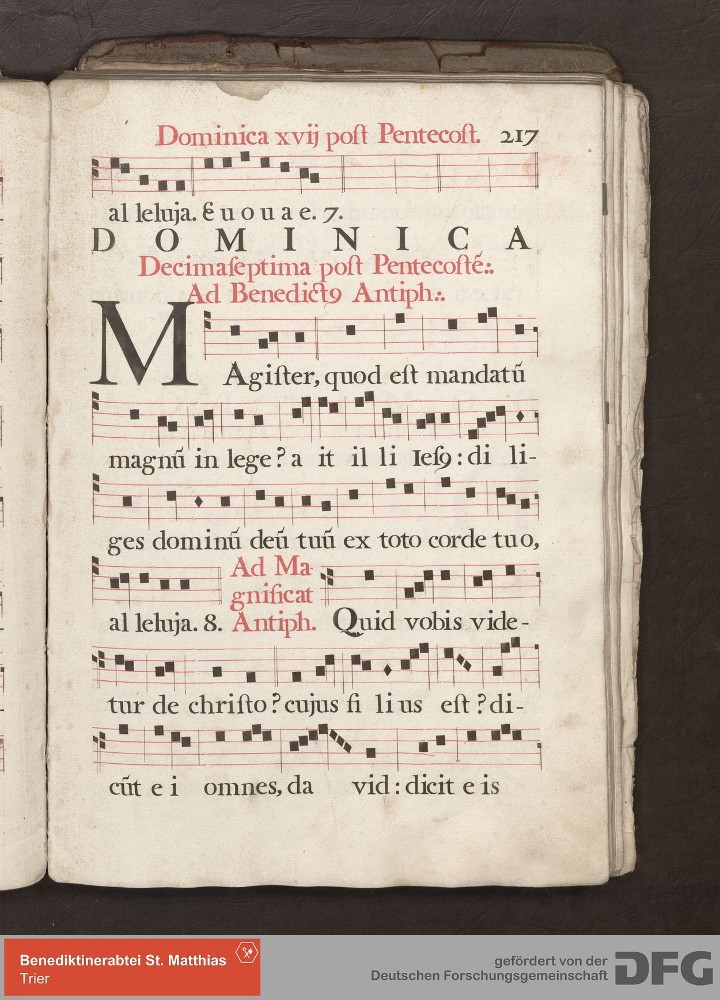 Dominica xvij poſt Pentecoſt. 217
al leluja. E u o u a e. 7.
DOMINICA
Decimaſeptima poſt Pentecoſtē:.
Ad Benedictꝰ Antiph:.
MAgiſter, quod eſt mandatū
magnū in lege? a it il li Ieſꝰ: di li-
ges dominū deū tuū ex toto corde tuo,
al leluja. 8. Ad Ma-
gnificat
Antiph. Quid vobis vide-
tur de chriſto? cujus fi li us eſt? di-
cūt e i omnes, da vid: dicit e is
Benediktinerabtei St. Matthias
Trier
gefördert von der
Deutschen Forschungsgemeinschaft DFG